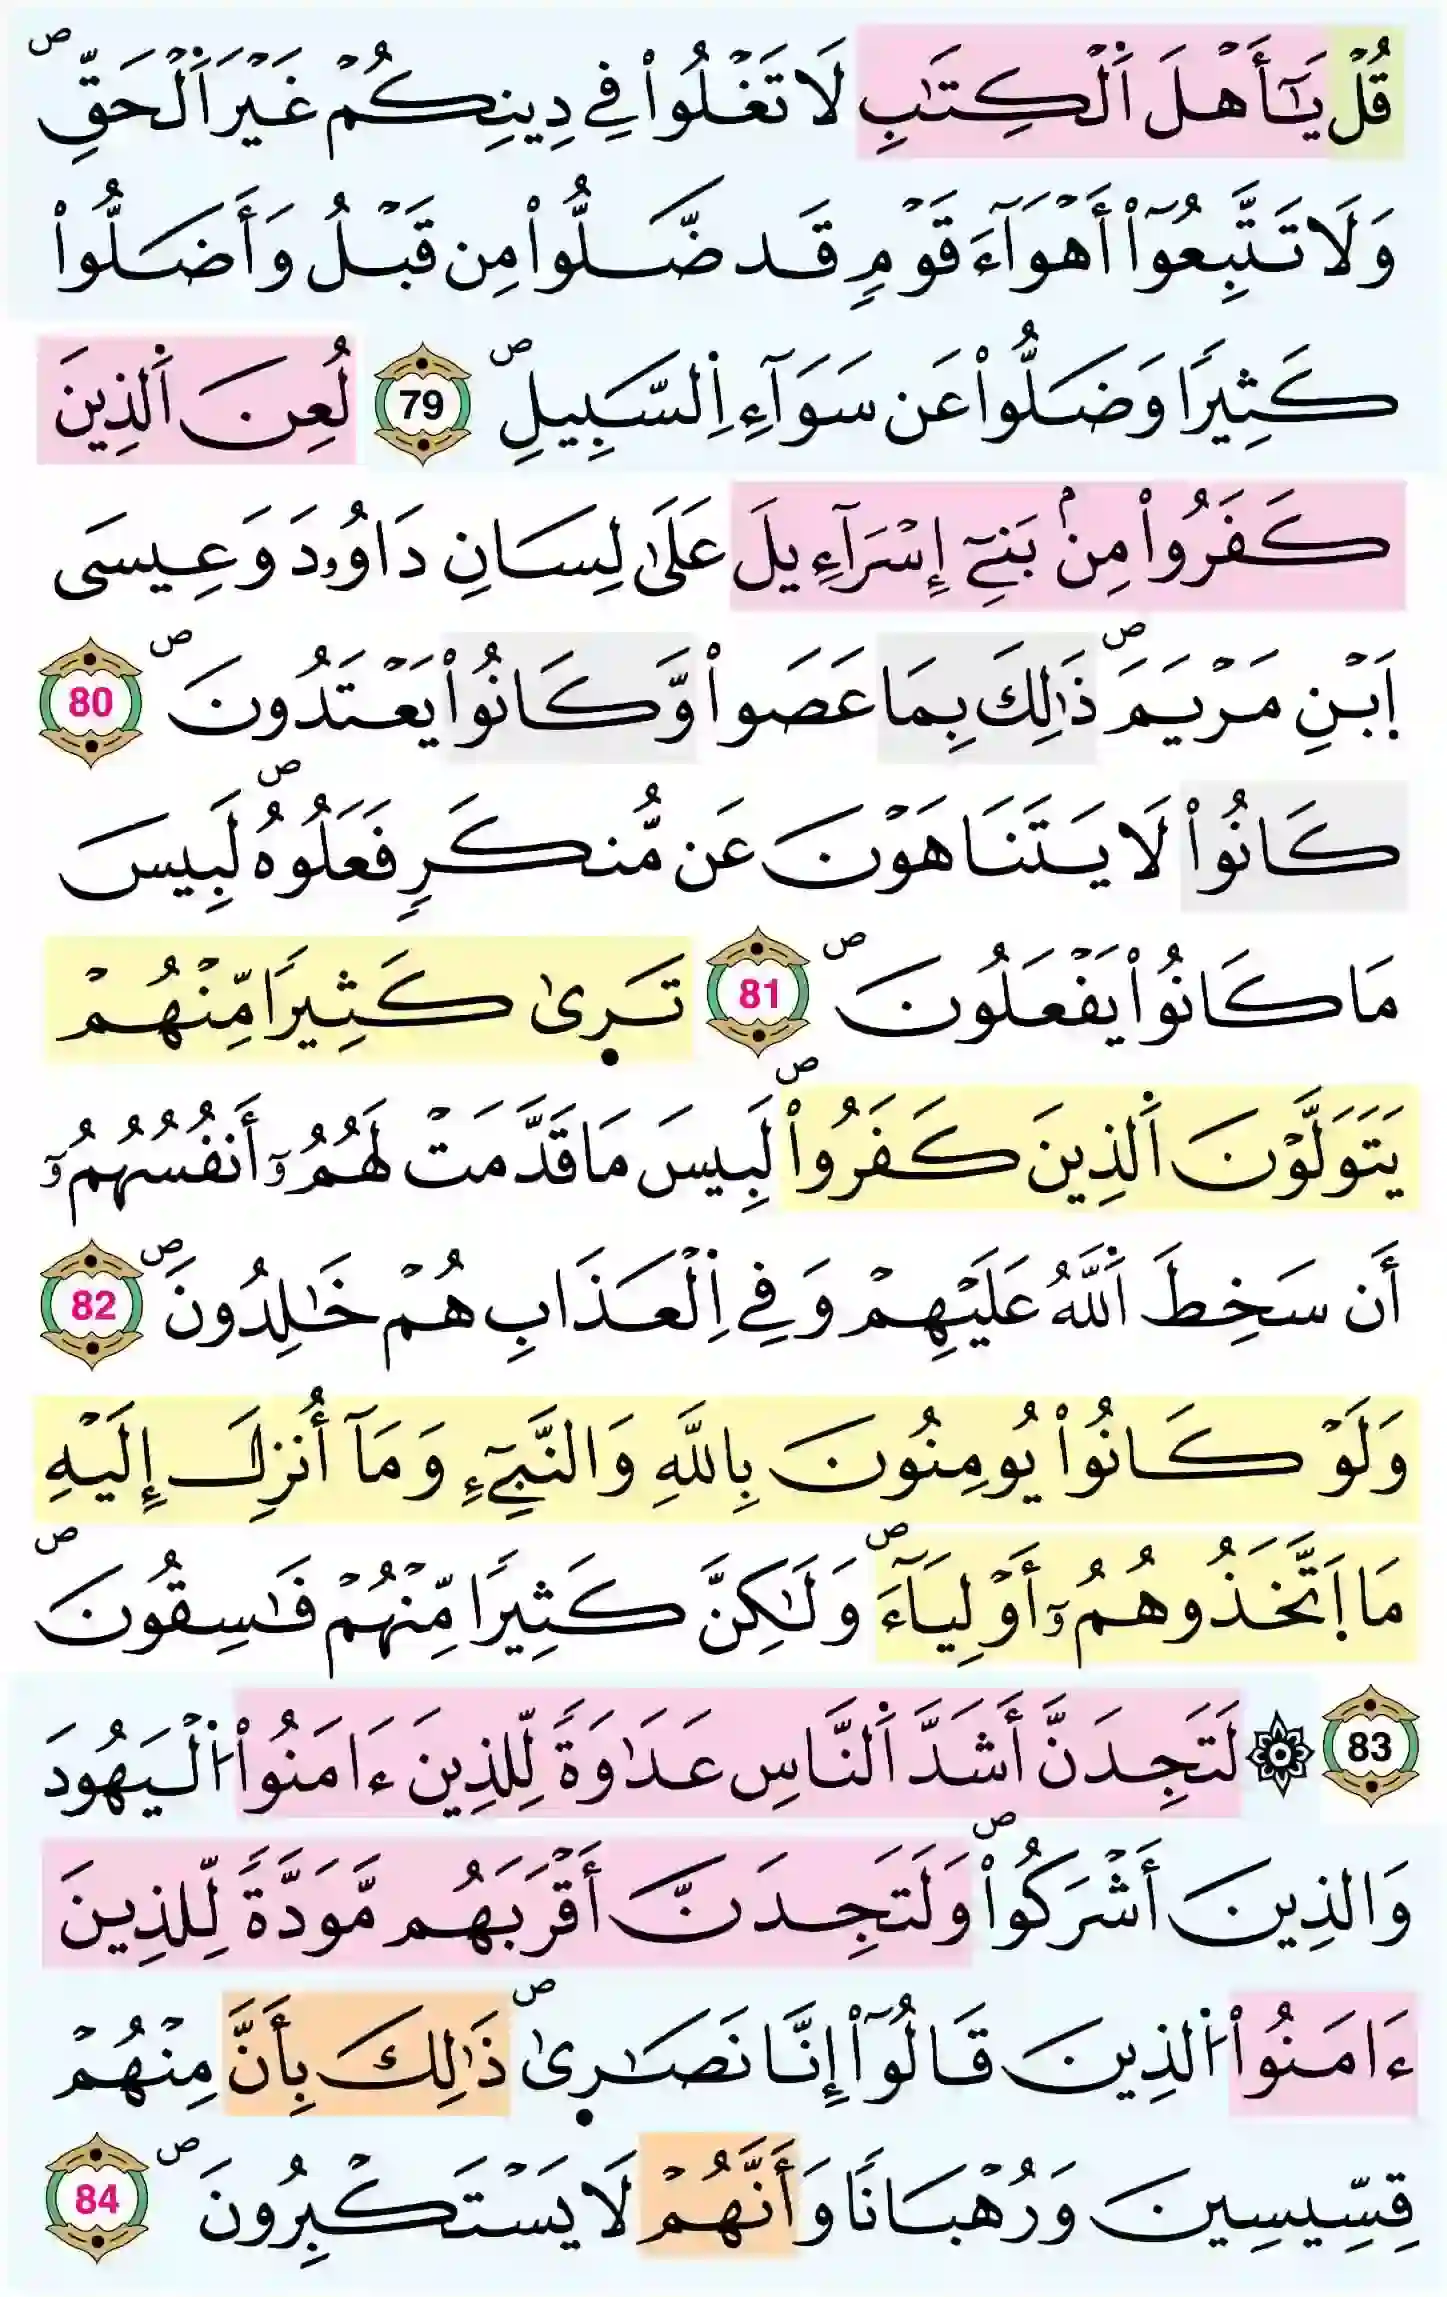 قُلْ يَٰٓأَهْلَ اَ۬لْكِتَٰبِ لَا تَغْلُواْ فِے دِينِكُمْ غَيْرَ اَ۬لْحَقِّۖ
وَلَا تَتَّبِعُوٓاْ أَهْوَآءَ قَوْمٖ قَد ضَّلُّواْ مِن قَبْلُ وَأَضَلُّواْ
كَثِيراٗ وَضَلُّواْ عَن سَوَآءِ اِ۬لسَّبِيلِۖ 79 لُعِنَ اَ۬لذِينَ
كَفَرُواْ مِنۢ بَنِےٓ إِسْرَآءِيلَ عَلَىٰ لِسَانِ دَاوُۥدَ وَعِيسَى
اَ۪بْنِ مَرْيَمَۖ ذَٰلِكَ بِمَا عَصَواْ وَّكَانُواْ يَعْتَدُونَۖ 80
كَانُواْ لَا يَتَنَاهَوْنَ عَن مُّنكَرٖ فَعَلُوهُۖ لَبِيسَ
مَا كَانُواْ يَفْعَلُونَۖ 81 تَر۪ىٰ كَثِيراٗ مِّنْهُمْ
يَتَوَلَّوْنَ اَ۬لذِينَ كَفَرُواْۖ لَبِيسَ مَا قَدَّمَتْ لَهُمُۥٓ أَنفُسُهُمُۥٓ
أَن سَخِطَ اَ۬للَّهُ عَلَيْهِمْ وَفِے اِ۬لْعَذَابِ هُمْ خَٰلِدُونَۖ 82
وَلَوْ كَانُواْ يُومِنُونَ بِاللَّهِ وَالنَّبِےٓءِ وَمَآ أُنزِلَ إِلَيْهِ
مَا اَ۪تَّخَذُوهُمُۥٓ أَوْلِيَآءَۖ وَلَٰكِنَّ كَثِيراٗ مِّنْهُمْ فَٰسِقُونَۖ
83 ۞ لَتَجِدَنَّ أَشَدَّ اَ۬لنَّاسِ عَدَٰوَةٗ لِّلذِينَ ءَامَنُواْ اُ۬لْيَهُودَ
وَالذِينَ أَشْرَكُواْۖ وَلَتَجِدَنَّ أَقْرَبَهُم مَّوَدَّةٗ لِّلذِينَ
ءَامَنُواْ اُ۬لذِينَ قَالُوٓاْ إِنَّا نَصَٰر۪ىٰۖ ذَٰلِكَ بِأَنَّ مِنْهُمْ
قِسِّيسِينَ وَرُهْبَاناٗ وَأَنَّهُمْ لَا يَسْتَكْبِرُونَۖ 84